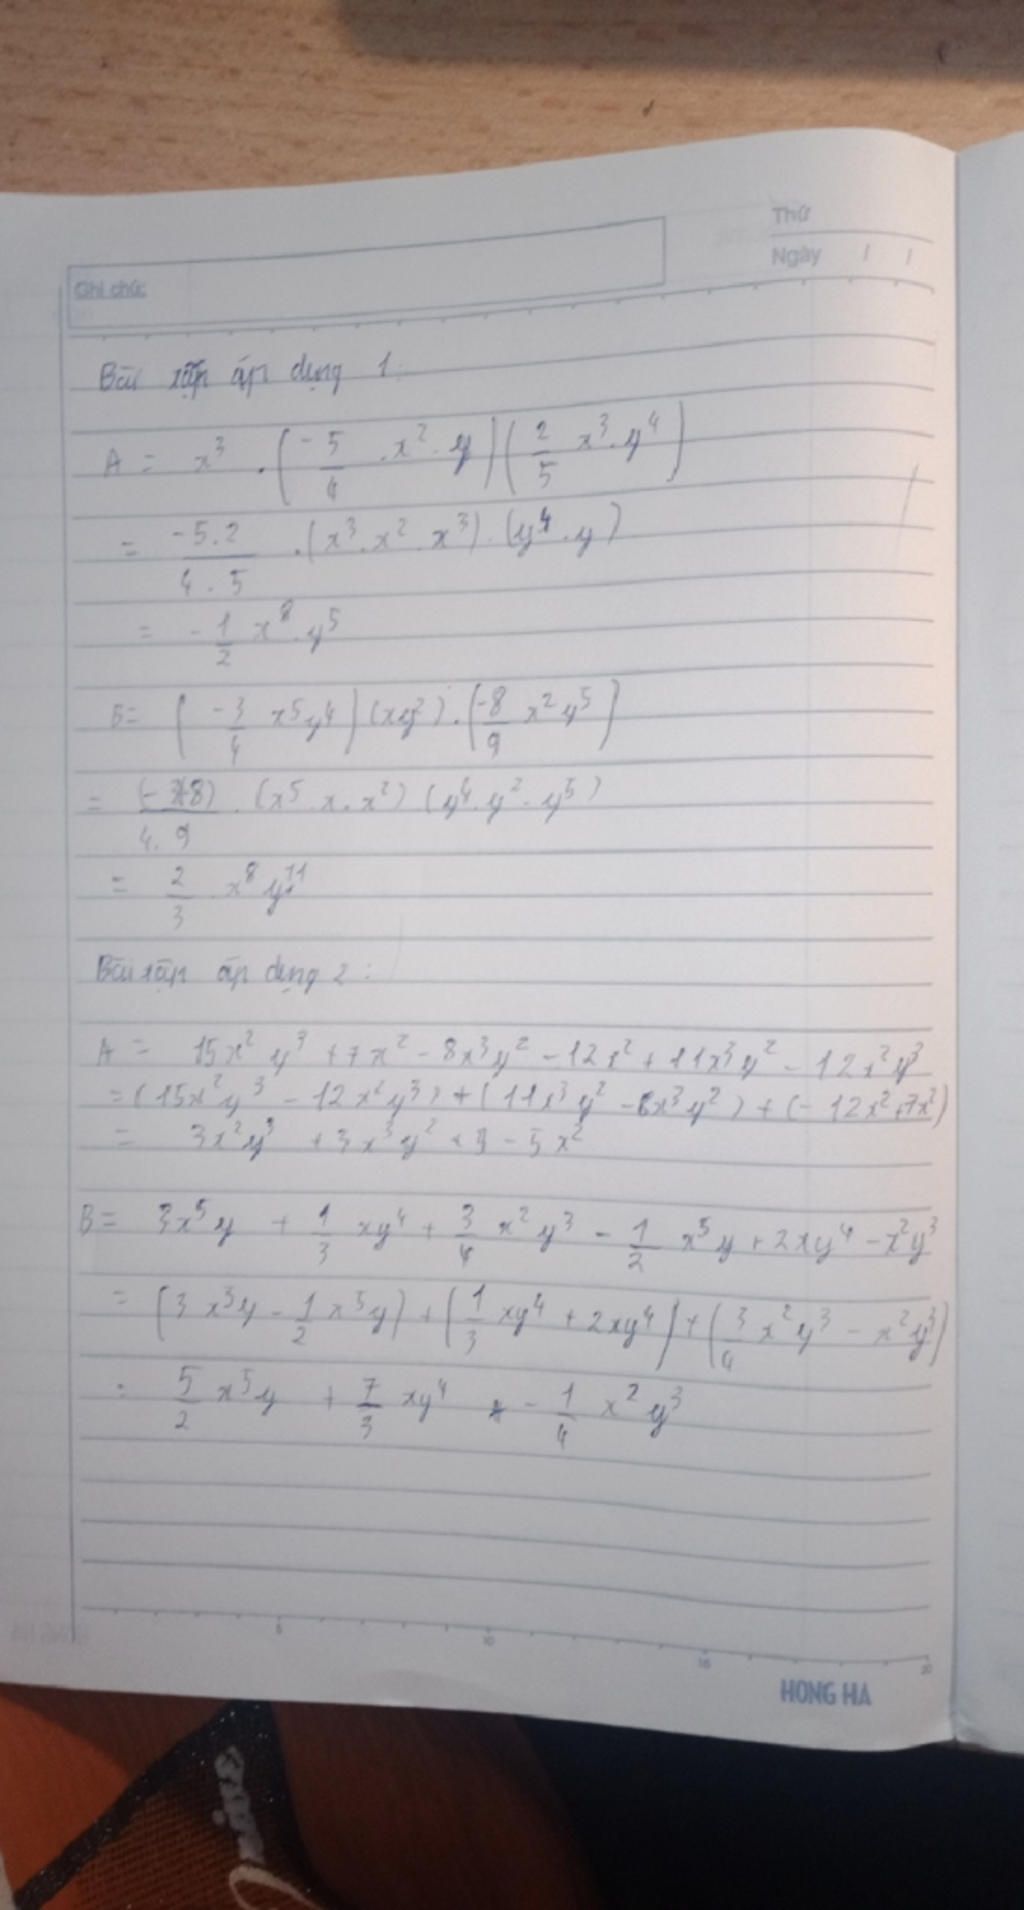 Thứ
Ngày / /
Ghi chú:
Bài tập áp dụng 1:
A = x³ . (-5/4 . x² . y) (2/5 x³ . y⁴)
= -5.2/4.5 . (x³ . x² . x³) . (y⁴ . y)
= -1/2 x⁸ . y⁵
B = (-3/4 x⁵y⁴) (xy²) . (-8/9 x²y⁵)
= /4.9 . (x⁵ . x . x²) (y⁴ . y² . y⁵)
= 2/3 . x⁸ y¹¹
Bài tập áp dụng 2:
A = 15x² y³ + 7x² - 8x³y² - 12x² + 11x³y² - 12x²y³
= (15x²y³ - 12x²y³) + (11x³y² - 8x³y²) + (- 12x² + 7x²)
= 3x²y³ + 3x³y² - 5x²
B = 3x⁵y + 1/3 xy⁴ + 3/4 x²y³ - 1/2 x⁵y + 2xy⁴ - x²y³
= (3x⁵y - 1/2 x⁵y) + (1/3 xy⁴ + 2xy⁴) + (3/4 x²y³ - x²y³)
= 5/2 x⁵y + 7/3 xy⁴ - 1/4 x²y³
5 10 15 20
HONG HA